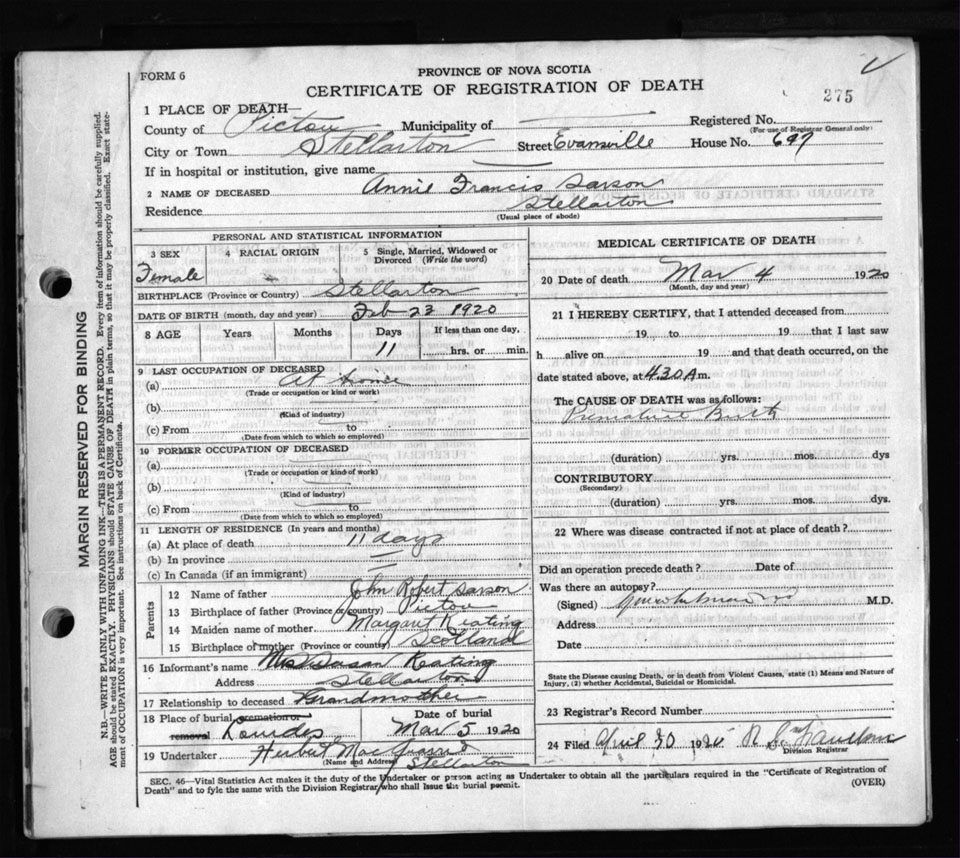 PROVINCE OF NOVA SCOTIA
FORM 6
CERTIFICATE OF REGISTRATION OF DEATH
275
1 PLACE OF DEATH—
County of Pictou Municipality of Registered No.
(For use of Registrar General only)
City or Town Stellarton Street Evansville House No. 697
If in hospital or institution, give name
2 NAME OF DECEASED Annie Francis Sarson
Residence Stellarton
(Usual place of abode)
PERSONAL AND STATISTICAL INFORMATION
3 SEX 4 RACIAL ORIGIN 5 Single, Married, Widowed or Divorced (Write the word)
Female
BIRTHPLACE (Province or Country) Stellarton
DATE OF BIRTH (month, day and year) Feb 23 1920
8 AGE Years Months Days If less than one day,
11 hrs. or min.
9 LAST OCCUPATION OF DECEASED
(a) At home
(Trade or occupation or kind of work)
(b)
(Kind of industry)
(c) From to
(Date from which to which so employed)
10 FORMER OCCUPATION OF DECEASED
(a)
(Trade or occupation or kind of work)
(b)
(Kind of industry)
(c) From to
(Date from which to which so employed)
11 LENGTH OF RESIDENCE (In years and months)
(a) At place of death 11 days
(b) In province
(c) In Canada (if an immigrant)
Parents
12 Name of father John Robert Sarson
13 Birthplace of father (Province or country) Pictou
14 Maiden name of mother Margaret Keating
15 Birthplace of mother (Province or country) Scotland
16 Informant's name Mrs Susan Keating
Address Stellarton
17 Relationship to deceased Grandmother
18 Place of burial, cremation or removal Lourdes Date of burial Mar 5 1920
19 Undertaker Herbert
(Name and Address) Stellarton
MEDICAL CERTIFICATE OF DEATH
20 Date of death Mar 4 1920
(Month, day and year)
21 I HEREBY CERTIFY, that I attended deceased from
19 to 19 that I last saw
h alive on 19 and that death occurred, on the
date stated above, at 4.30 A m.
The CAUSE OF DEATH was as follows:
Premature Birth
(duration) yrs. mos. dys
CONTRIBUTORY
(Secondary)
(duration) yrs. mos. dys.
22 Where was disease contracted if not at place of death?
Did an operation precede death? Date of
Was there an autopsy?
(Signed) M.D.
Address
Date
State the Disease causing Death, or in death from Violent Causes, state (1) Means and Nature of
Injury, (2) whether Accidental, Suicidal or Homicidal.
23 Registrar's Record Number
24 Filed April 30 1920
Division Registrar
SEC. 46—Vital Statistics Act makes it the duty of the Undertaker or person acting as Undertaker to obtain all the particulars required in the "Certificate of Registration of
Death" and to fyle the same with the Division Registrar, who shall issue the burial permit.
(OVER)
MARGIN RESERVED FOR BINDING
N.B.—WRITE PLAINLY WITH UNFADING INK—THIS IS A PERMANENT RECORD. Every item of information should be carefully supplied.
AGE should be stated EXACTLY. PHYSICIANS should STATE CAUSE OF DEATH in plain terms, so that it may be properly classified. Exact state-
ment of OCCUPATION is very important. See instructions on back of Certificate.